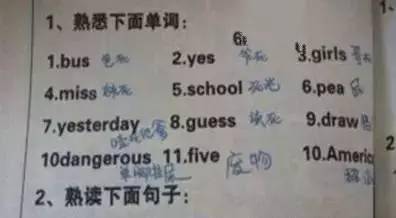 1、熟悉下面单词：
1.bus 2.yes 爷死 3.girls 哥死
4.miss 妹死 5.school 死光 6.pea
7.yesterday 8.guess 9.draw
10dangerous 11.five 废物 10.Americ
2、熟读下面句子：